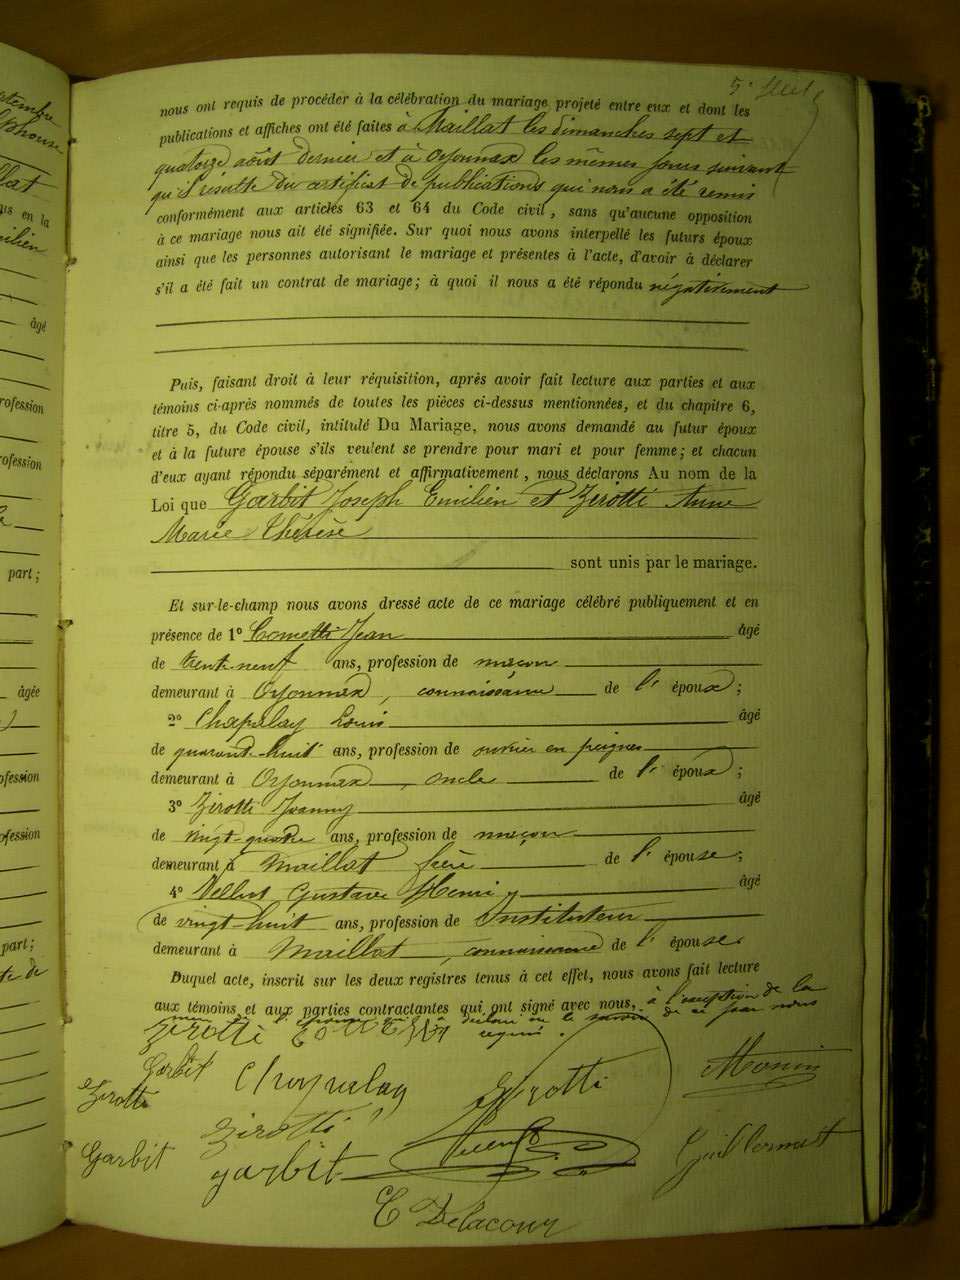 5e
nous ont requis de procéder à la célébration du mariage projeté entre eux et dont les
publications et affiches ont été faites à Maillat les dimanches sept et
quatorze août dernier et à Oyonnax les mêmes jours suivant
qu'il résulte du certificat de publications qui nous a été remis
conformément aux articles 63 et 64 du Code civil, sans qu'aucune opposition
à ce mariage nous ait été signifiée. Sur quoi nous avons interpellé les futurs époux
ainsi que les personnes autorisant le mariage et présentes à l'acte, d'avoir à déclarer
s'il a été fait un contrat de mariage; à quoi il nous a été répondu négativement
Puis, faisant droit à leur réquisition, après avoir fait lecture aux parties et aux
témoins ci-après nommés de toutes les pièces ci-dessus mentionnées, et du chapitre 6,
titre 5, du Code civil, intitulé Du Mariage, nous avons demandé au futur époux
et à la future épouse s'ils veulent se prendre pour mari et pour femme; et chacun
d'eux ayant répondu séparément et affirmativement, nous déclarons Au nom de la
Loi que Garbit Joseph Emilien et Zirotti Anne
Marie Thérèse
sont unis par le mariage.
Et sur-le-champ nous avons dressé acte de ce mariage célébré publiquement et en
présence de 1° Cometti Jean âgé
de trente-neuf ans, profession de maçon
demeurant à Oyonnax, connaissance de l' époux;
2° Chapelay Louis âgé
de quarante-huit ans, profession de ouvrier en peignes
demeurant à Oyonnax, oncle de l' époux;
3° Zirotti Joanny âgé
de vingt-quatre ans, profession de maçon
demeurant à Maillat frère de l' épouse;
4° Vellut Gustave Henri âgé
de vingt-huit ans, profession de Instituteur
demeurant à Maillat, connaissance de l' épouse
Duquel acte, inscrit sur les deux registres tenus à cet effet, nous avons fait lecture
aux témoins et aux parties contractantes qui ont signé avec nous, à l'exception de la
de l'époux qui a déclaré ne le savoir de ce par nous
requis.
Zirotti COMETTI
Garbit Chapelay Zirotti Monin
Zirotti
Zirotti
Garbit garbit Guillermet
C Delacour